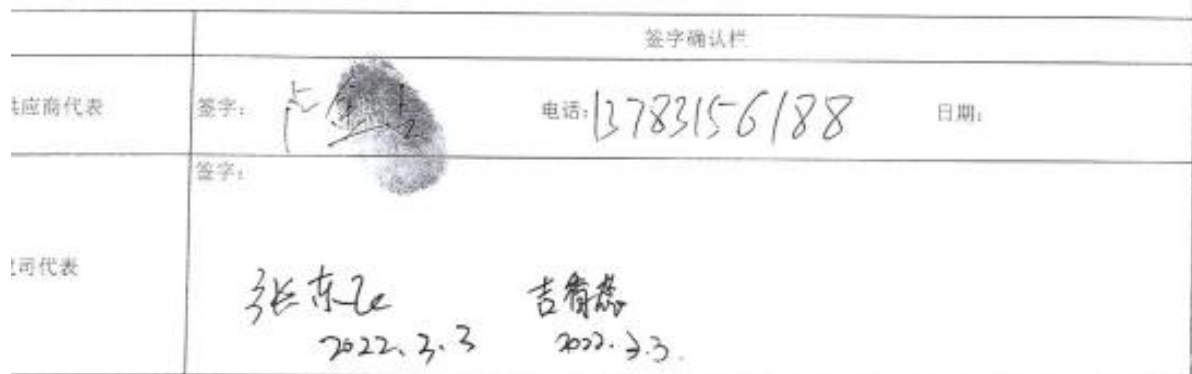 签字确认栏
供应商代表 签字： 电话：13783156188 日期：
签字：
司代表
张东飞 吉肖蕊
2022.3.3 2022.3.3.